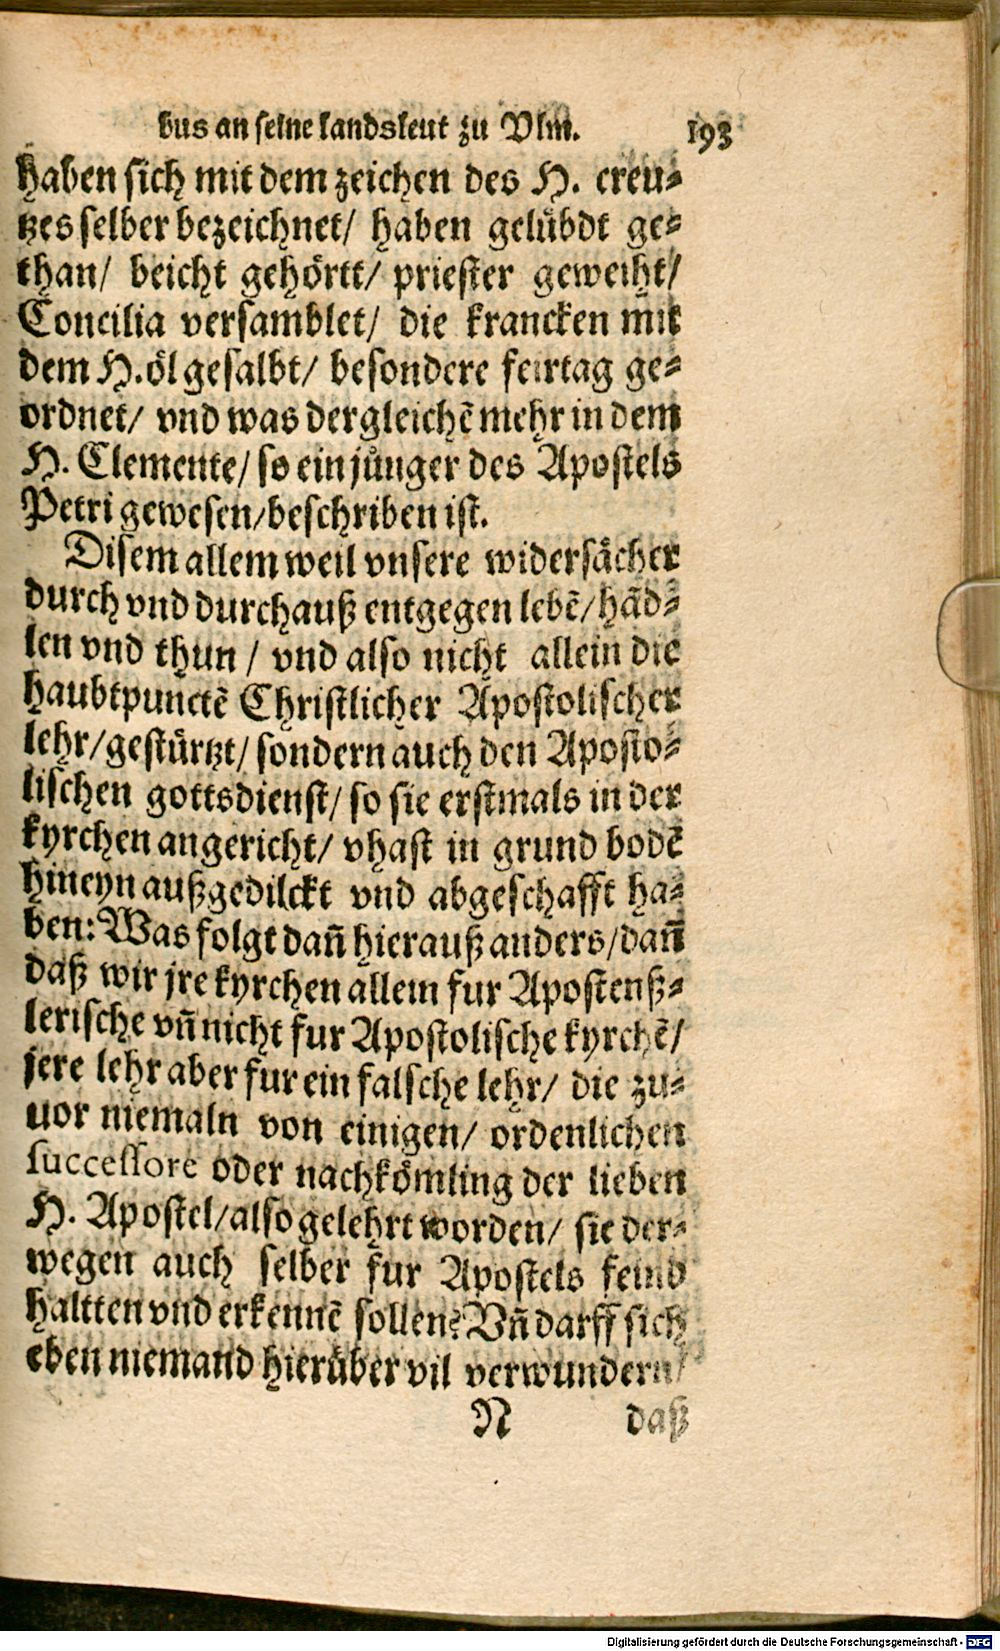 bus an seine landsleut zu Vlm. 193
haben sich mit dem zeichen des H. creu⸗
tzes selber bezeichnet/ haben gelübdt ge⸗
than/ beicht gehörtt/ priester geweiht/
Concilia versamblet/ die krancken mit
dem H. öl gesalbt/ besondere feirtag ge⸗
ordnet/ vnd was dergleichẽ mehr in dem
H. Clemente/ so ein jünger des Apostels
Petri gewesen/ beschriben ist.
Disem allem weil vnsere widersächer
durch vnd durchauß entgegen lebẽ/ hãd⸗
len vnd thun/ vnd also nicht allein die
haubtpunctẽ Christlicher Apostolischer
lehr/ gestürtzt/ sondern auch den Aposto⸗
lischen gottsdienst/ so sie erstmals in der
kyrchen angericht/ vhast in grund bodẽ
hineyn außgedilckt vnd abgeschafft ha⸗
ben: Was folgt dañ hierauß anders/ dañ
daß wir jre kyrchen allein fur Apostenß⸗
lerische vñ nicht fur Apostolische kyrchẽ/
jere lehr aber fur ein falsche lehr/ die zu⸗
uor niemaln von einigen/ ordenlichen
successore oder nachkömling der lieben
H. Apostel/ also gelehrt worden/ sie der⸗
wegen auch selber fur Apostels feind
haltten vnd erkennẽ sollen? Vñ darff sich
eben niemand hierüber vil verwundern/
N daß
Digitalisierung gefördert durch die Deutsche Forschungsgemeinschaft - DFG